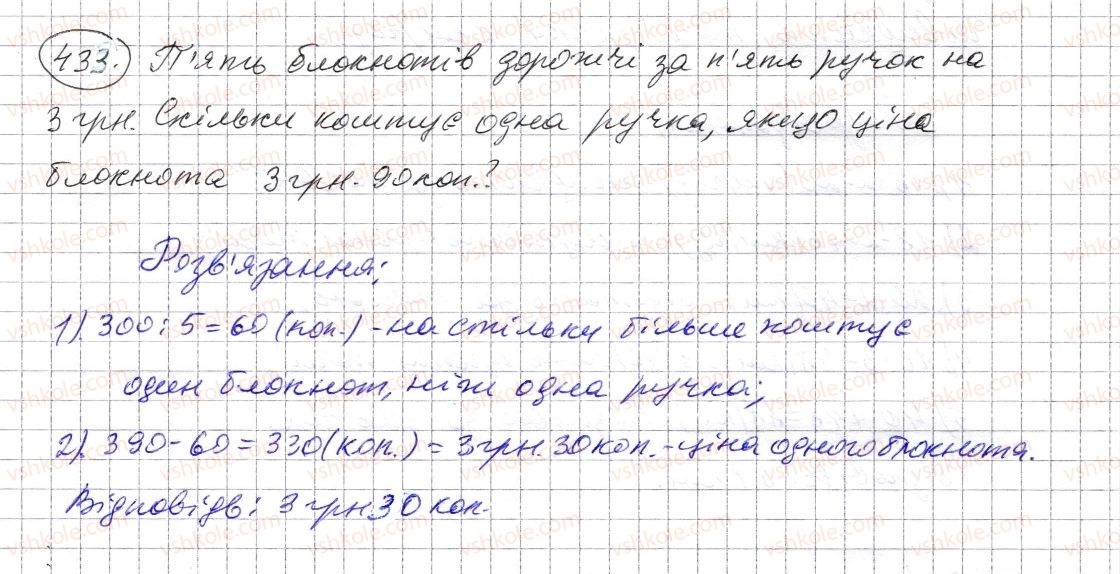 433. П'ять блокнотів дорожчі за п'ять ручок на
3 грн. Скільки коштує одна ручка, якщо ціна
блокнота 3 грн. 90 коп.?
Розв'язання;
1). 300 : 5 = 60 (коп.) - на стільки більше коштує
один блокнот, ніж одна ручка;
2). 390 - 60 = 330 (коп.) = 3 грн. 30 коп. - ціна одного блокнота.
Відповідь: 3 грн 30 коп.